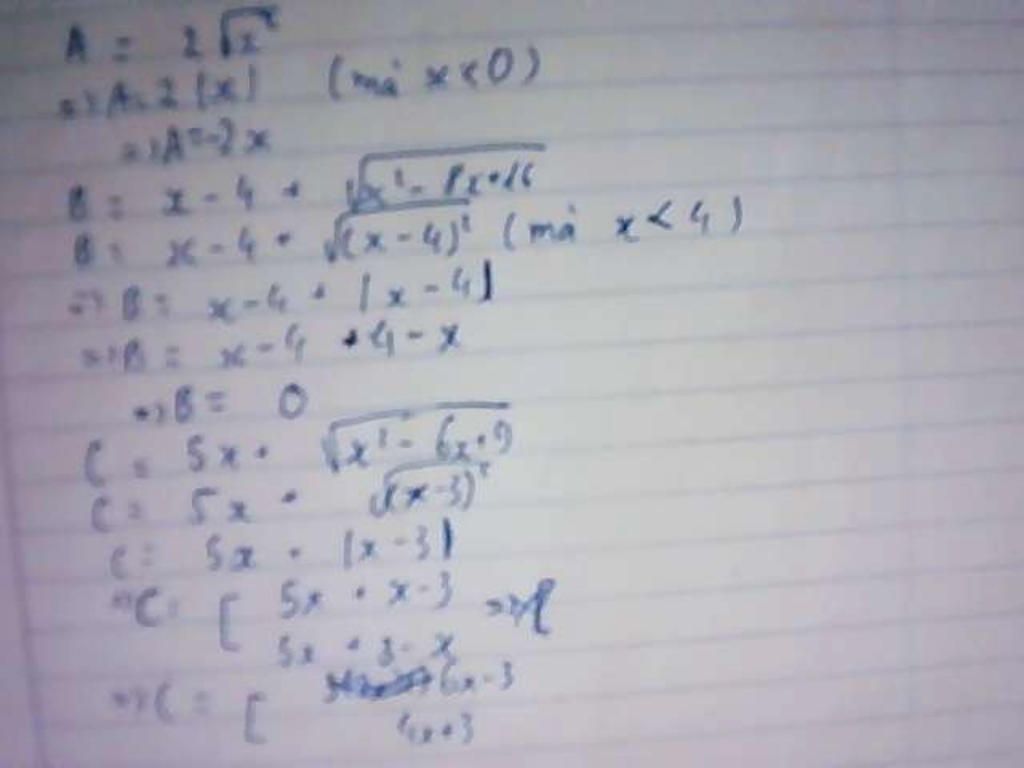 A = 2√x²
=> A = 2|x| (mà x < 0)
=> A = -2x
B = x - 4 + √x² - 8x + 16
B = x - 4 + √(x - 4)² (mà x < 4)
=> B = x - 4 + |x - 4|
=> B = x - 4 + 4 - x
=> B = 0
C = 5x + √x² - 6x + 9
C = 5x + √(x - 3)²
C = 5x + |x - 3|
=> C = [ 5x + x - 3 =>
5x + 3 - x
=> C = [ 6x - 3
4x + 3